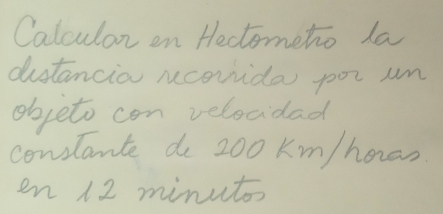 Calcular en Hectometro la
distancia recorrida por un
objeto con velocidad
constante de 200 Km/horas.
en 12 minutos